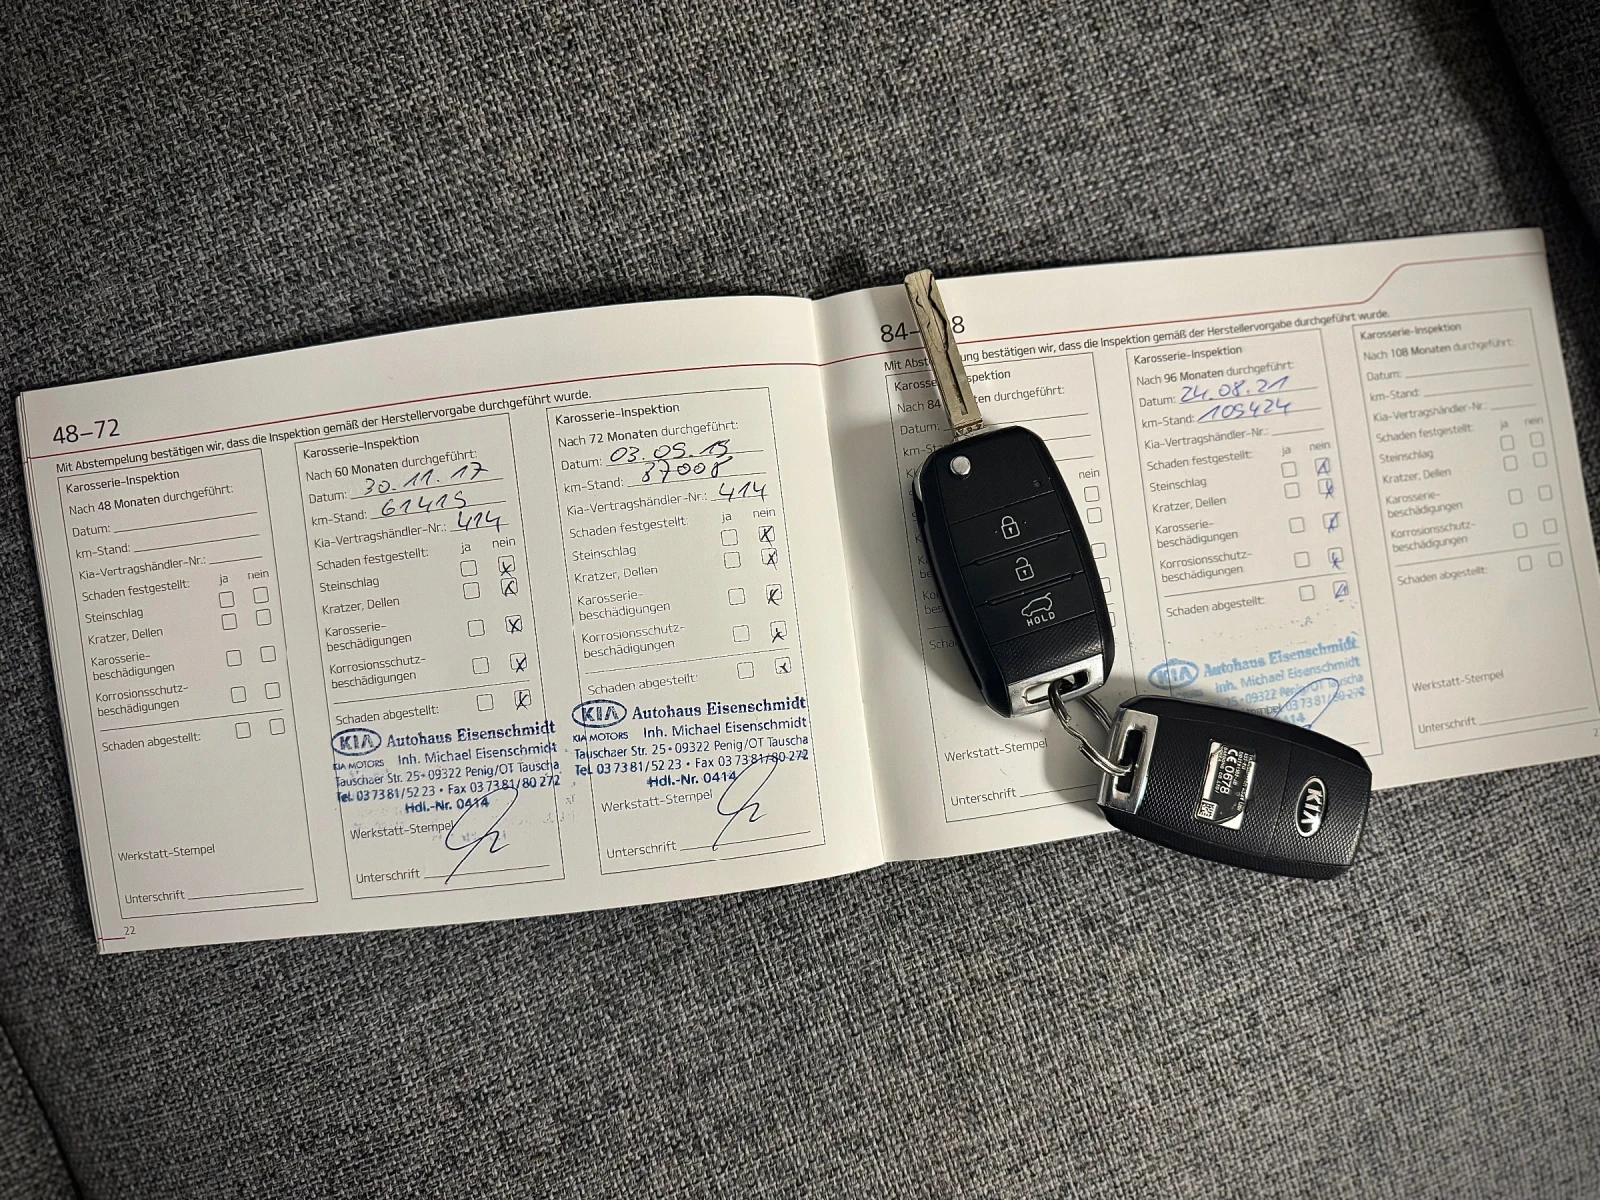 48–72
Mit Abstempelung bestätigen wir, dass die Inspektion gemäß der Herstellervorgabe durchgeführt wurde.
Karosserie-Inspektion
Nach 48 Monaten durchgeführt:
Datum:
km-Stand:
Kia-Vertragshändler-Nr.:
Schaden festgestellt: ja nein
Steinschlag
Kratzer, Dellen
Karosserie-
beschädigungen
Korrosionsschutz-
beschädigungen
Schaden abgestellt:
Werkstatt-Stempel
Unterschrift
22
Karosserie-Inspektion
Nach 60 Monaten durchgeführt:
Datum: 30.11.17
km-Stand: 61415
Kia-Vertragshändler-Nr.: 414
Schaden festgestellt: ja nein
Steinschlag
Kratzer, Dellen
Karosserie-
beschädigungen
Korrosionsschutz-
beschädigungen
Schaden abgestellt:
KIA Autohaus Eisenschmidt
KIA MOTORS Inh. Michael Eisenschmidt
Tauschaer Str. 25 • 09322 Penig/OT Tauscha
Tel. 03 73 81/52 23 • Fax 03 73 81/80 272
Hdl.-Nr. 0414
Werkstatt-Stempel
Unterschrift
Karosserie-Inspektion
Nach 72 Monaten durchgeführt:
Datum: 03.09.19
km-Stand: 87008
Kia-Vertragshändler-Nr.: 414
Schaden festgestellt: ja nein
Steinschlag
Kratzer, Dellen
Karosserie-
beschädigungen
Korrosionsschutz-
beschädigungen
Schaden abgestellt:
KIA Autohaus Eisenschmidt
KIA MOTORS Inh. Michael Eisenschmidt
Tauschaer Str. 25 • 09322 Penig/OT Tauscha
Tel. 03 73 81/52 23 • Fax 03 73 81/80 272
Hdl.-Nr. 0414
Werkstatt-Stempel
Unterschrift
84– 8
Mit bestätigen wir, dass die Inspektion gemäß der Herstellervorgabe durchgeführt wurde.
Nach 84 durchgeführt:
Datum:
nein
Werkstatt-Stempel
Unterschrift
Karosserie-Inspektion
Nach 96 Monaten durchgeführt:
Datum: 24.08.21
km-Stand: 105424
Kia-Vertragshändler-Nr.:
Schaden festgestellt: ja nein
Steinschlag
Kratzer, Dellen
Karosserie-
beschädigungen
Korrosionsschutz-
beschädigungen
Schaden abgestellt:
KIA Autohaus Eisenschmidt
Inh. Michael Eisenschmidt
25 • 09322 Penig/OT Tauscha
0414
Karosserie-Inspektion
Nach 108 Monaten durchgeführt:
Datum:
km-Stand:
Kia-Vertragshändler-Nr.:
Schaden festgestellt: ja nein
Steinschlag
Kratzer, Dellen
Karosserie-
beschädigungen
Korrosionsschutz-
beschädigungen
Schaden abgestellt:
Werkstatt-Stempel
Unterschrift
HOLD
CE 0678
KIA